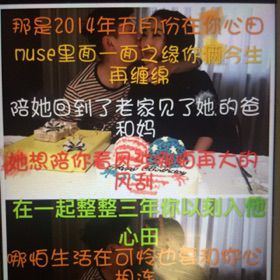 那是2014年五月份在你心田
muse里面一面之缘你俩今生
再缠绵
陪她回到了老家见了她的爸
和妈
她想陪你看风
风刮
在一起整整三年你以刻入他
心田
哪怕生活在可怜也
相连